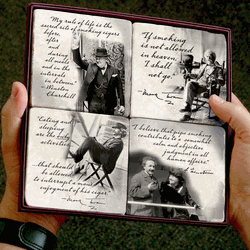 "My rule of life is the
sacred rite of smoking cigars
before,
after
and
during
all meals
and in the
intervals
in between."
- Winston
Churchill
"If smoking
is not allowed
in heaven,
I shall
not go."
- Mark Twain
"Eating and
sleeping
are the only
activities
that should
be allowed
to interrupt a man's
enjoyment of his cigar."
- Mark Twain
"I believe that pipe smoking
contributes to a somewhat
calm and objective
judgment in all
human affairs."
- Einstein